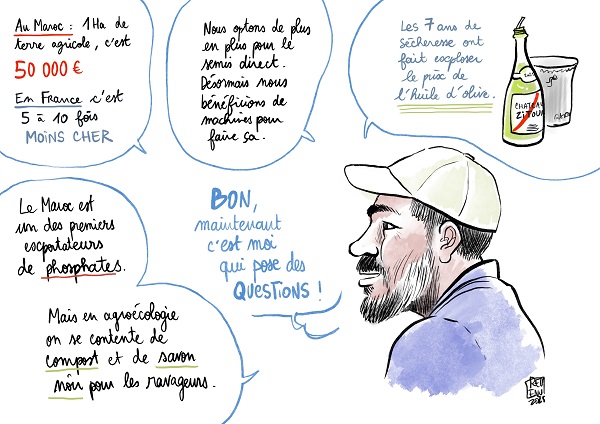 Au Maroc : 1 Ha de
terre agricole, c'est
50 000 €
En France c'est
5 à 10 fois
MOINS CHER
Nous optons de plus
en plus pour le
semis direct.
Désormais nous
bénéficions de
machines pour
faire ça.
Les 7 ans de
sécheresse ont
fait exploser
le prix de
l'huile d'olive.
CHATEAU
ZITOUN
Le Maroc est
un des premiers
exportateurs
de phosphates.
Mais en agroécologie
on se contente de
compost et de savon
noir pour les ravageurs.
BON,
maintenant
c'est moi
qui pose des
QUESTIONS !